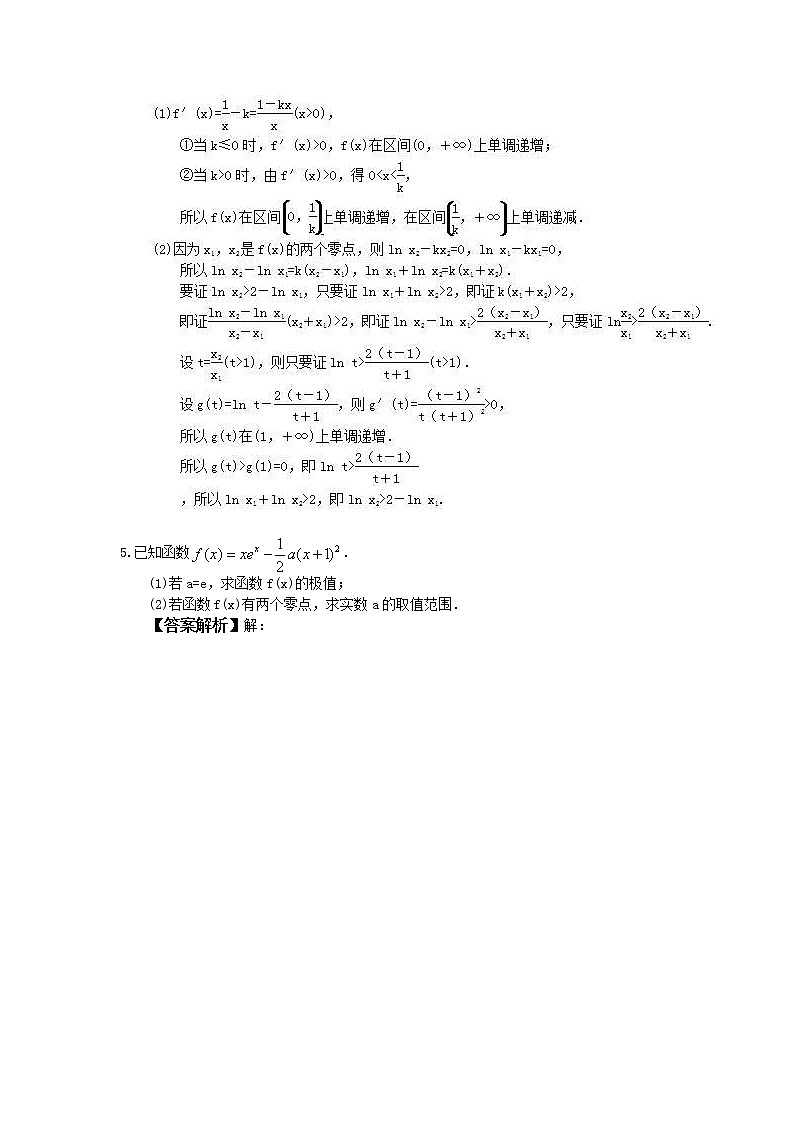 (1)f′(x)=1/x－k=(1－kx)/x(x>0),
①当k≤0时,f′(x)>0,f(x)在区间(0,＋∞)上单调递增;
②当k>0时,由f′(x)>0,得0<x<1/k,
所以f(x)在区间(0,1/k)上单调递增,在区间(1/k,＋∞)上单调递减.
(2)因为x₁,x₂是f(x)的两个零点,则ln x₂－kx₂=0,ln x₁－kx₁=0,
所以ln x₂－ln x₁=k(x₂－x₁),ln x₁＋ln x₂=k(x₁＋x₂).
要证ln x₂>2－ln x₁,只要证ln x₁＋ln x₂>2,即证k(x₁＋x₂)>2,
即证(ln x₂－ln x₁)/(x₂－x₁)(x₂＋x₁)>2,即证ln x₂－ln x₁>2(x₂－x₁)/(x₂＋x₁),只要证ln x₂/x₁>2(x₂－x₁)/(x₂＋x₁).
设t=x₂/x₁(t>1),则只要证ln t>2(t－1)/(t＋1)(t>1).
设g(t)=ln t－2(t－1)/(t＋1),则g′(t)=(t－1)²/(t(t＋1)²)>0,
所以g(t)在(1,＋∞)上单调递增.
所以g(t)>g(1)=0,即ln t>2(t－1)/(t＋1)
,所以ln x₁＋ln x₂>2,即ln x₂>2－ln x₁.
5.已知函数f(x)=xeˣ－1/2a(x+1)².
(1)若a=e,求函数f(x)的极值;
(2)若函数f(x)有两个零点,求实数a的取值范围.
【答案解析】解: